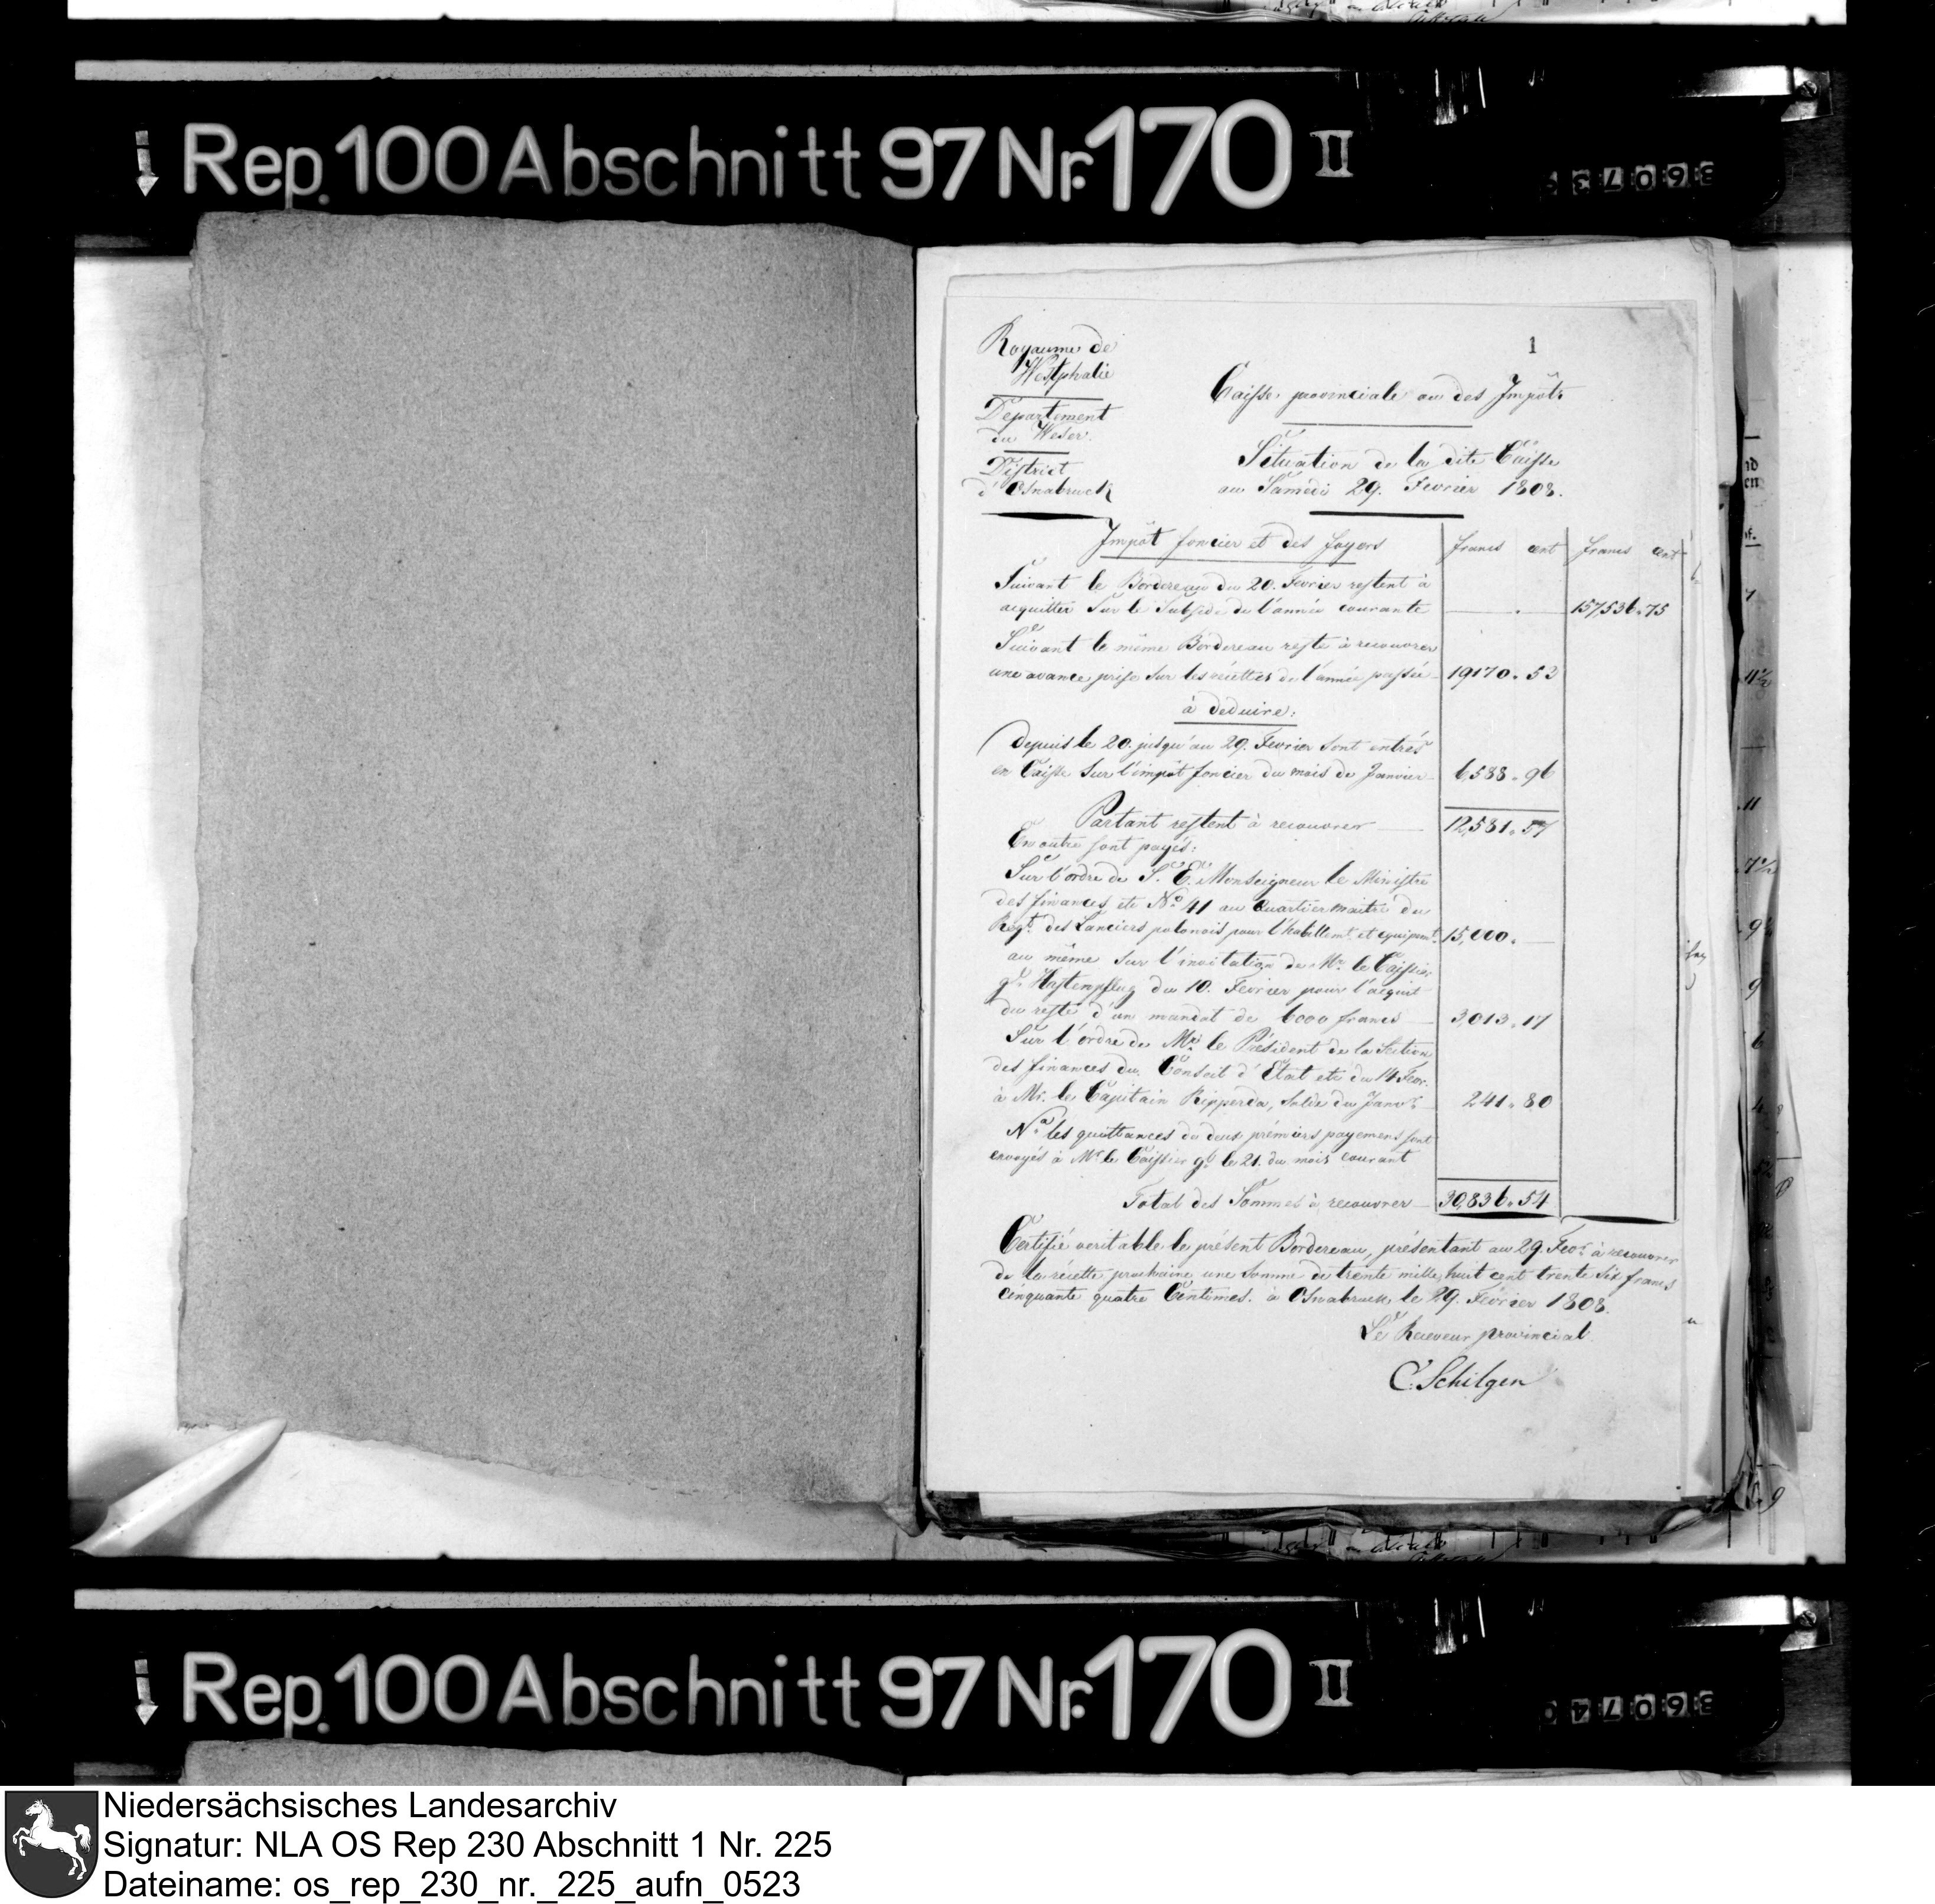 Rep. 100 Abschnitt 97 Nr. 170 II
Royaume de
Westphalie
1
Departement
du Weser.
District
d'Osnabruck
Caisse provinciale ou des Impôts
Situation de la dite Caisse
au Samedi 29. Fevrier 1808.
Impôt foncier et des foyers francs cent francs cent
Suivant le Bordereau du 20. Fevrier restent à
acquitter sur le Subside de l'année courante 157,536. 75
Suivant le même Bordereau reste à recouvrer
une avance prise sur les récettes de l'année passée 19170. 53
à deduire:
Depuis le 20. jusqu'au 29. Fevrier sont entrés
en Caisse sur l'impôt foncier du mois de Janvier 6,588. 96
Partant restent à recouvrer 12,581. 57
En outre sont payés:
Sur l'ordre de S. E. Monseigneur le Ministre
des finances etc No. 41 au Quartier maitre du
Regt. des Lanciers polonois pour l'habillemt. et equipemt. 15,000.
au même sur l'invitation de Mr. le Caissier
gl. du 10. Fevrier pour l'acquit
du reste d'un mandat de 6000 francs 3,013. 17
Sur l'ordre de Mr. le Président de la Section
des finances du Conseil d'Etat etc du 14 Fevr.
à Mr. le Capitain Ripperda, solde du Janvr. 241. 80
Na. les quittances de deux prémiers payemens sont
envoyés à Mr. le Caissier gl. le 21. du mois courant
Total des Sommes à recouvrer 30,836. 54
Certifié veritable le présent Bordereau, présentant au 29. Fevr. à recouvrer
de la récette prochaine une somme de trente mille huit cent trente six francs
cinquante quatre Centimes. à Osnabruck, le 29. Fevrier 1808.
Le Receveur provincial
C. Schilgen
Rep. 100 Abschnitt 97 Nr. 170 II
Niedersächsisches Landesarchiv
Signatur: NLA OS Rep 230 Abschnitt 1 Nr. 225
Dateiname: os_rep_230_nr._225_aufn_0523